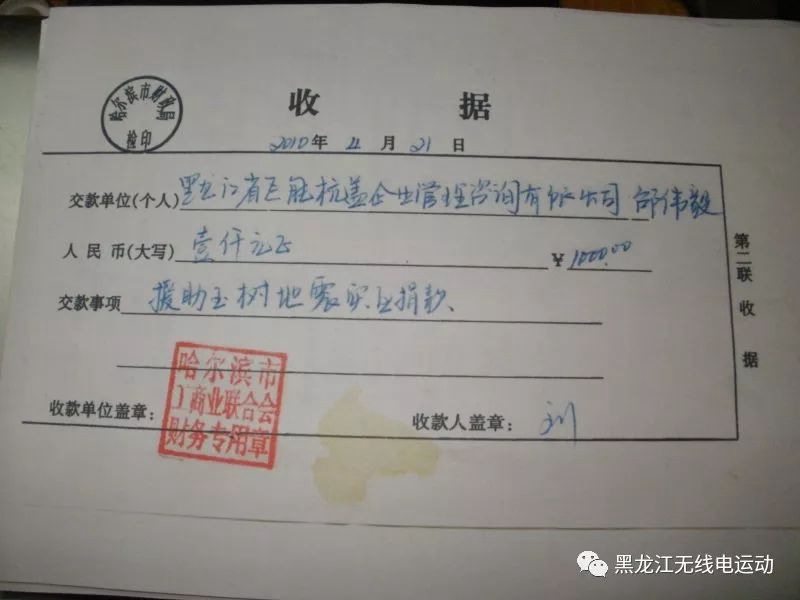 哈尔滨市财政局
检印
收 据
2010年 11月 21日
交款单位(个人) 黑龙江省巨能杭盖企业管理咨询有限公司 邰伟毅
人民币(大写) 壹仟元正 ¥1000.00
交款事项 援助玉树地震灾区捐款、
哈尔滨市
工商业联合会
财务专用章
收款单位盖章：
收款人盖章：
第二联 收据
黑龙江无线电运动